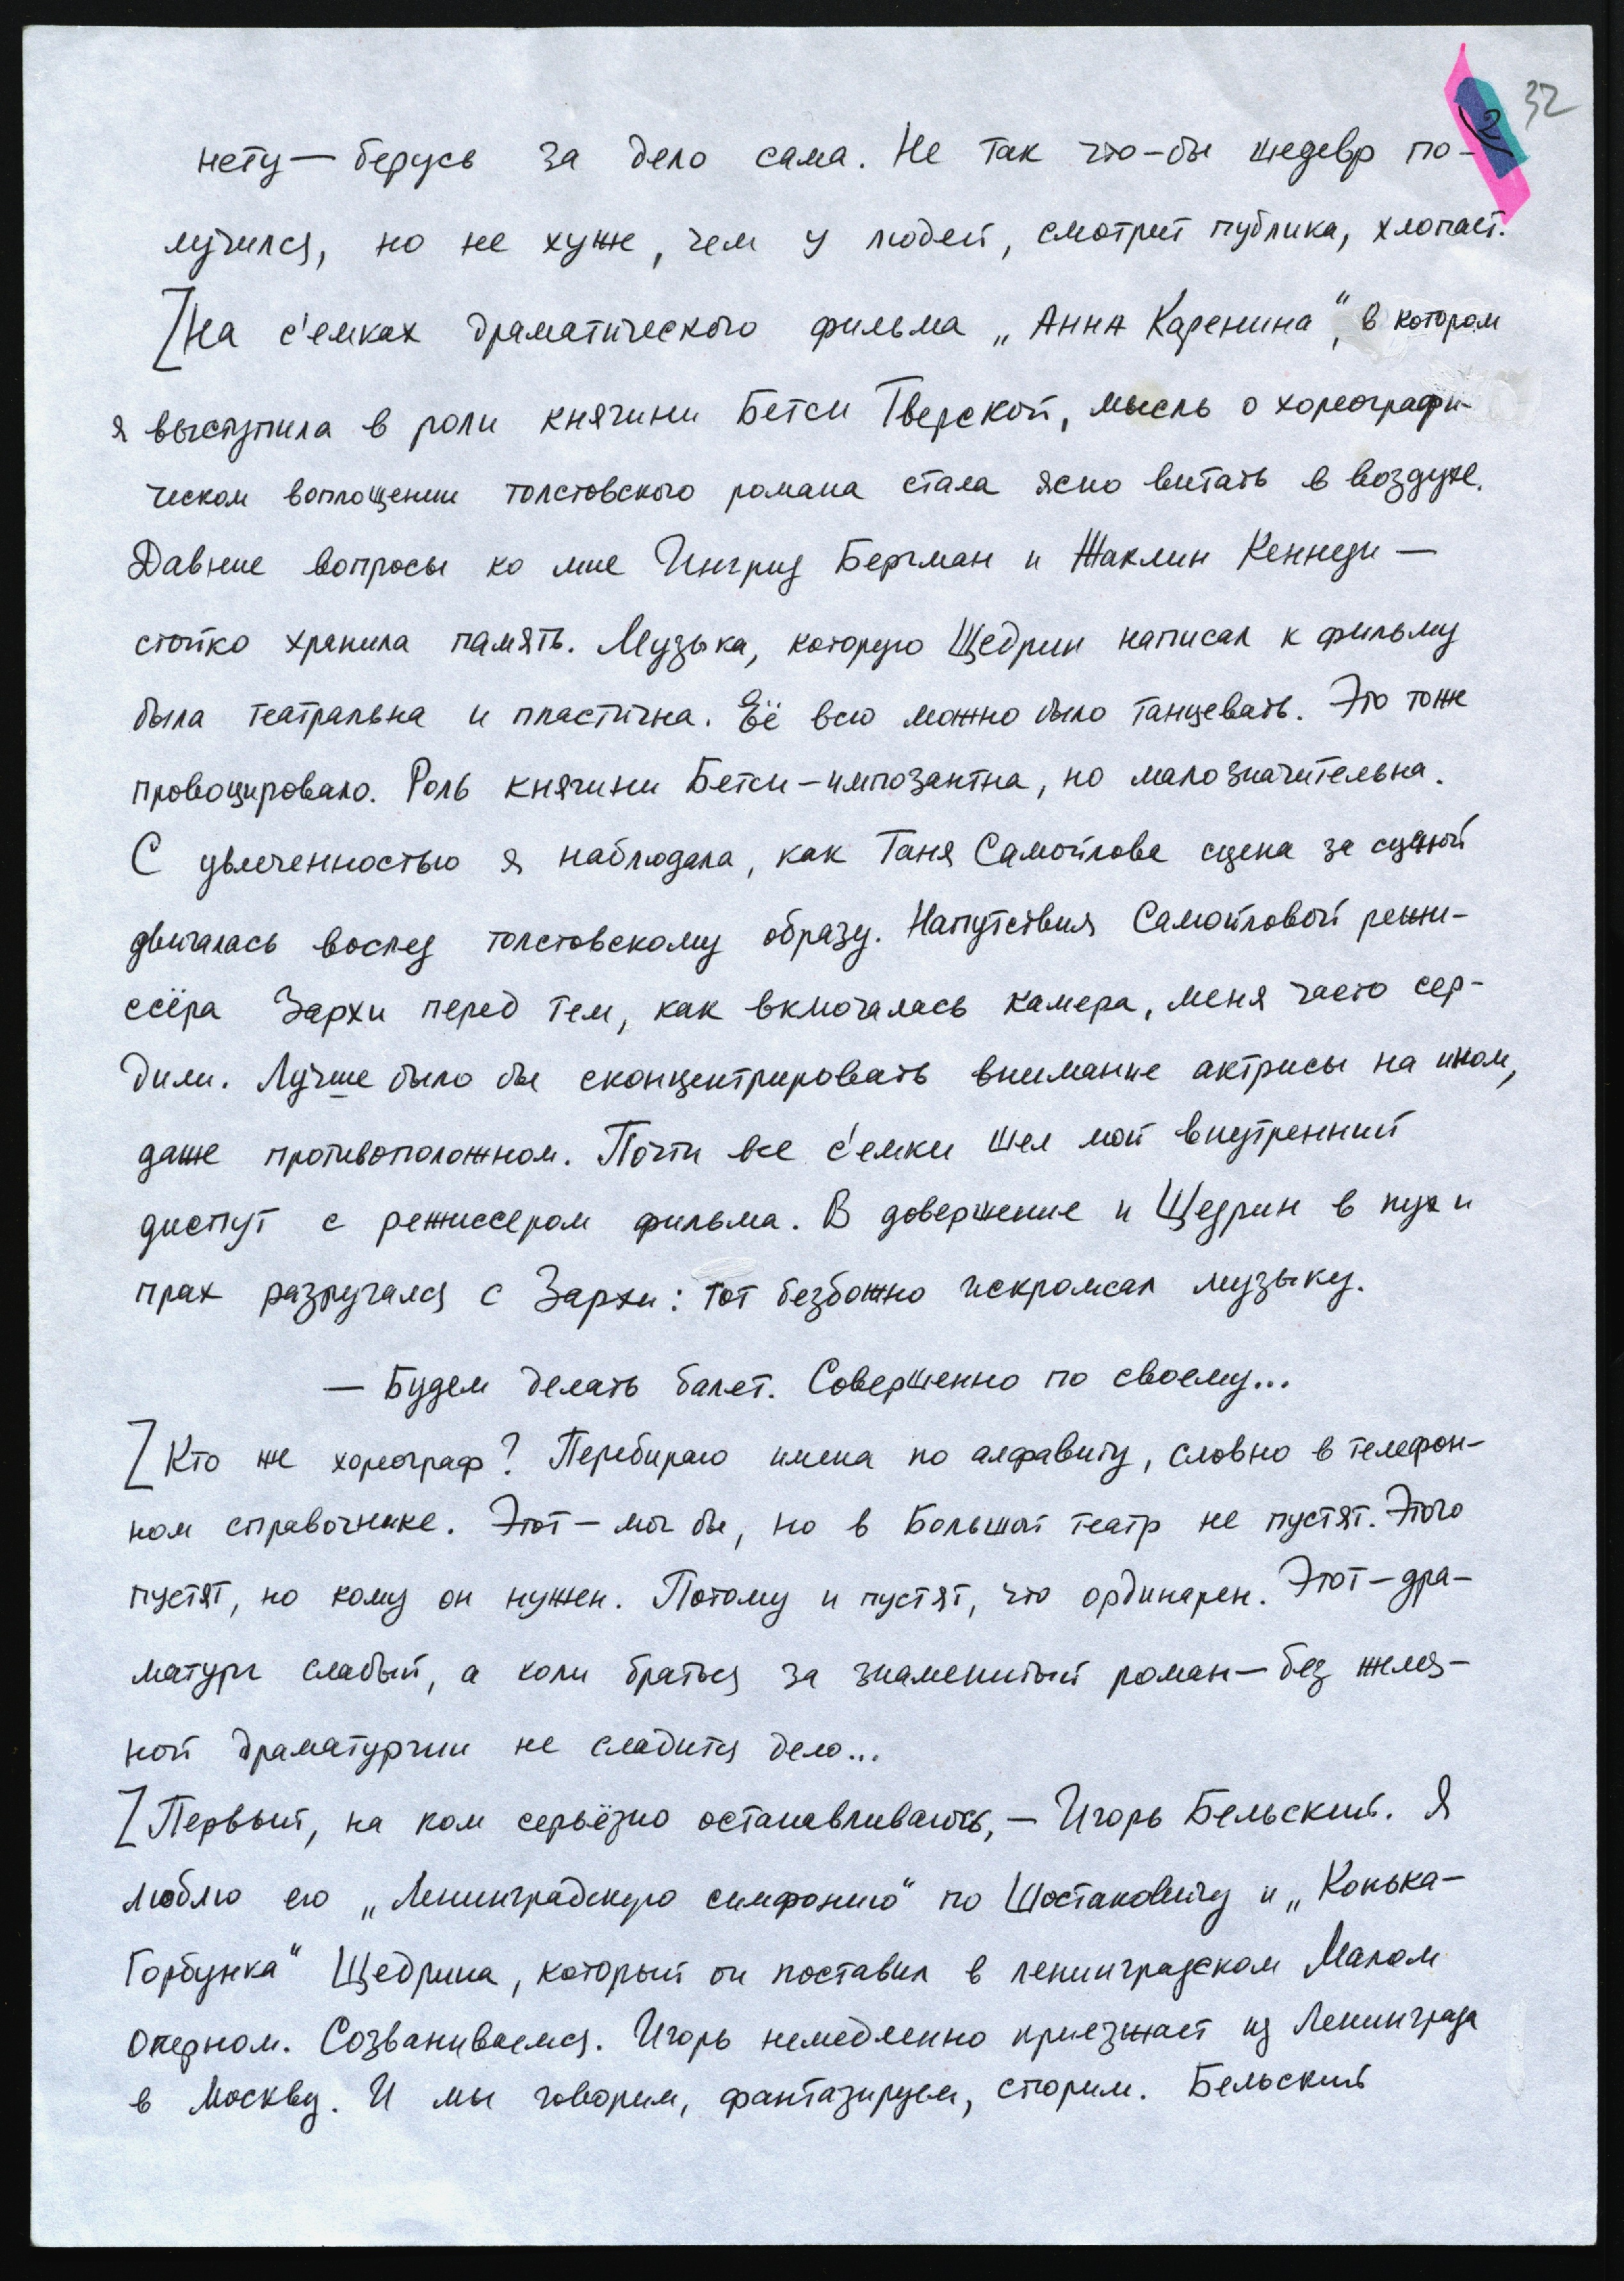 32
2
нету — берусь за дело сама. Не так что-бы шедевр по-
лучился, но не хуже, чем у людей, смотрит публика, хлопает.
[На с'емках драматического фильма „Анна Каренина“, в котором
я выступила в роли княгини Бетси Тверской, мысль о хореографи-
ческом воплощении толстовского романа стала ясно витать в воздухе.
Давние вопросы ко мне Ингрид Бергман и Жаклин Кеннеди —
стойко хранила память. Музыка, которую Щедрин написал к фильму
была театральна и пластична. Её всю можно было танцевать. Это тоже
провоцировало. Роль княгини Бетси – импозантна, но малозначительна.
С увлеченностью я наблюдала, как Таня Самойлова сцена за сценой
двигалась вослед толстовскому образу. Напутствия Самойловой режи-
ссёра Зархи перед тем, как включалась камера, меня часто сер-
дили. Лучше было бы сконцентрировать внимание актрисы на ином,
даже противоположном. Почти все с'емки шел мой внутренний
диспут с режиссером фильма. В довершение и Щедрин в пух и
прах разругался с Зархи: тот безбожно искромсал музыку.
— Будем делать балет. Совершенно по своему...
[Кто же хореограф? Перебираю имена по алфавиту, словно в телефон-
ном справочнике. Этот – мог бы, но в Большой театр не пустят. Этого
пустят, но кому он нужен. Потому и пустят, что ординарен. Этот – дра-
матург слабый, а коли браться за знаменитый роман — без желез-
ной драматургии не сладится дело...
[Первый, на ком серьёзно останавливаюсь, — Игорь Бельский. Я
люблю его „Ленинградскую симфонию“ по Шостаковичу и „Конька-
Горбунка“ Щедрина, который он поставил в ленинградском Малом
оперном. Созваниваемся. Игорь немедленно приезжает из Ленинграда
в Москву. И мы говорим, фантазируем, спорим. Бельский